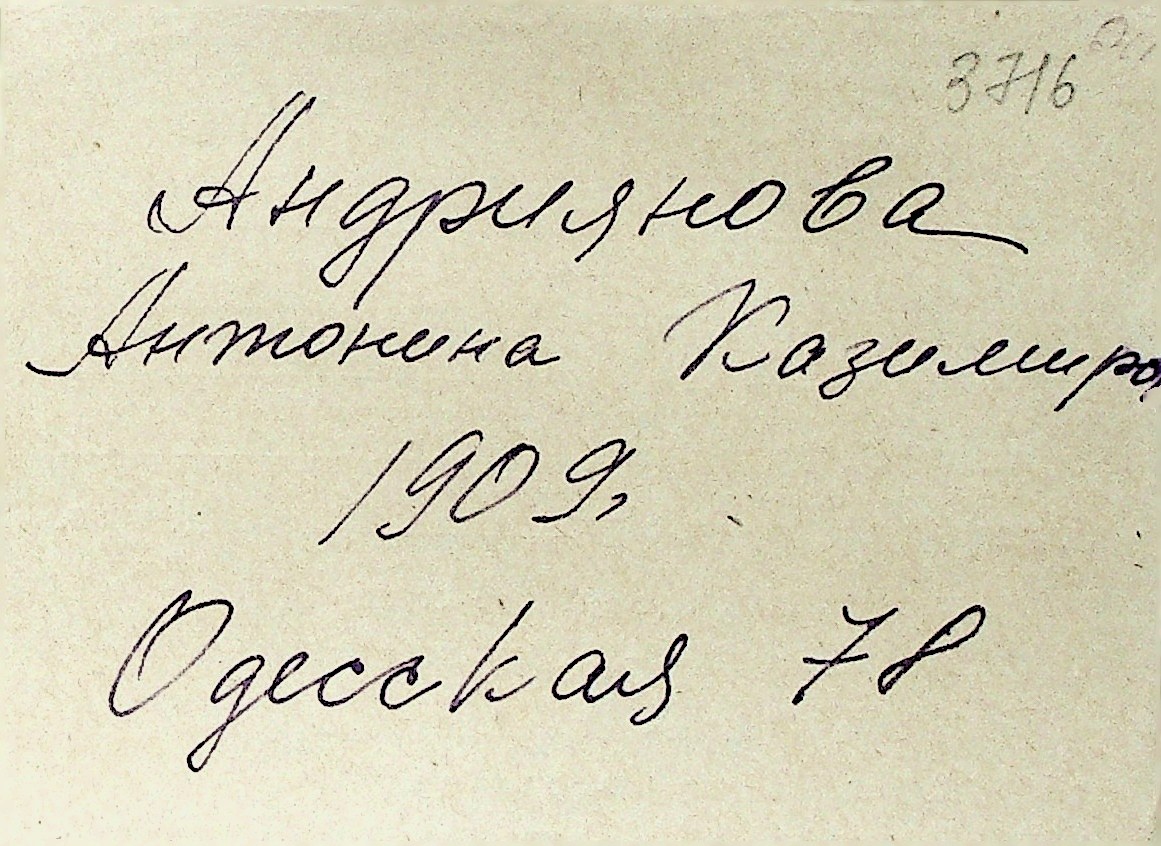 3716
Андриянова
Антонина Казимиро
1909г
Одесская 78